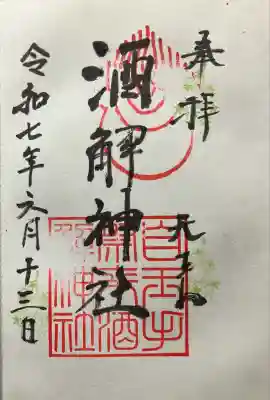 奉拝
天王山
酒解神社
自玉手
祭来酒
解神社
令和七年六月十三日